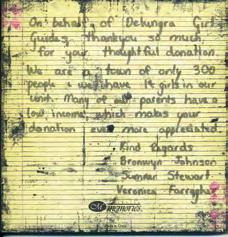 On behalf of Delungra Girl
Guides, thankyou so much
for your thoughtful donation.
We are a town of only 300
people & we have 14 girls in our
unit. Many of our parents have a
low income, which makes your
donation even more appreciated.
Kind Regards
Bronwyn Johnson
Summer Stewart
Veronica Farrugha
memories